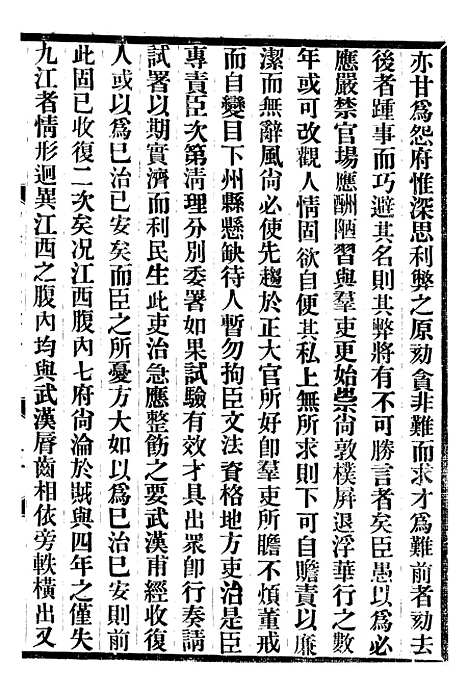 亦甘爲怨府惟深思利弊之原劾貪非難而求才爲難前者劾去
後者踵事而巧避其名則其弊將有不可勝言者矣臣愚以爲必
應嚴禁官場應酬陋習與羣吏更始崇尚敦樸屛退浮華行之數
年或可改觀人情固欲自便其私上無所求則下可自贍責以廉
潔而無辭風尙必使先趨於正大官所好卽羣吏所瞻不煩董戒
而自變目下州縣懸缺待人暫勿拘臣文法資格地方吏治是臣
專責臣次第淸理分別委署如果試驗有效才具出衆卽行奏請
試署以期實濟而利民生此吏治急應整飭之要武漢甫經收復
人或以爲已治已安矣而臣之所憂方大如以爲已治已安則前
此固已收復二次矣况江西腹內七府尙淪於賊與四年之僅失
九江者情形迥異江西之腹內均與武漢脣齒相依旁軼橫出又